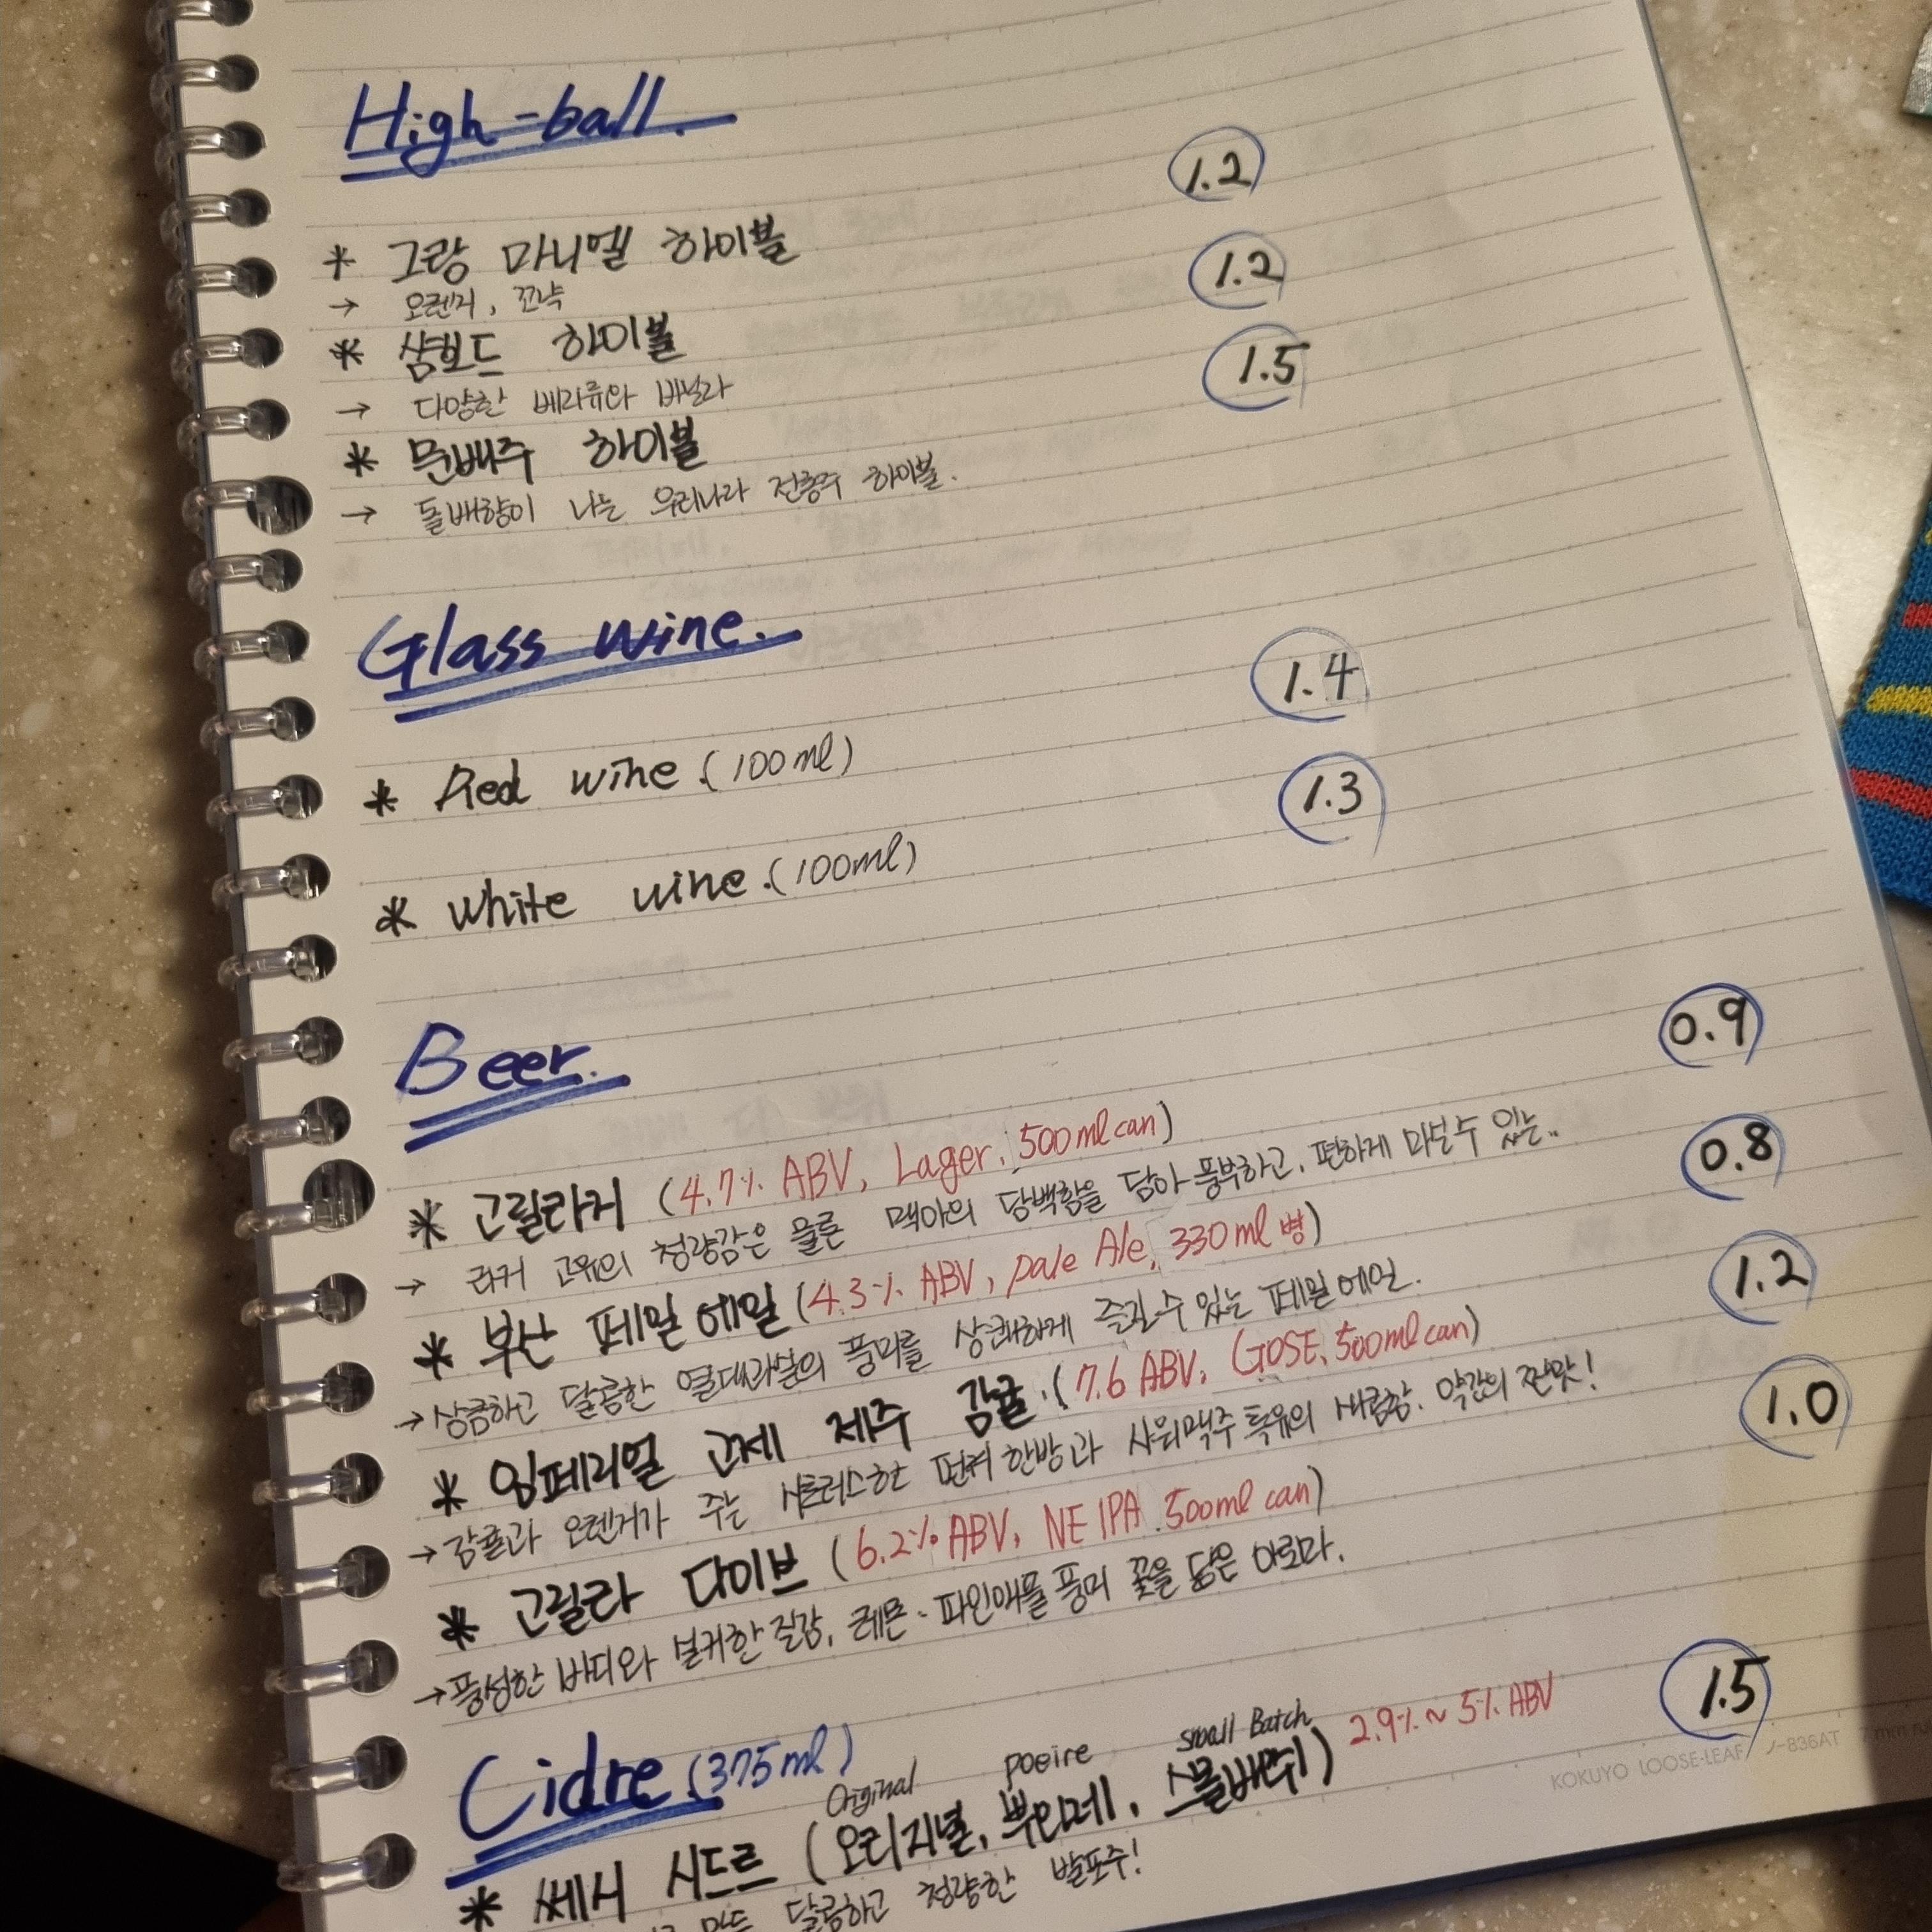 High-ball.
* 그랑 마니엘 하이볼 1.2
→ 오렌지, 꼬냑
* 샴보드 하이볼 1.2
→ 다양한 베리류와 바닐라
* 문배주 하이볼 1.5
→ 돌배향이 나는 우리나라 전통주 하이볼.
Glass wine.
* Red wine.(100ml) 1.4
* White wine.(100ml) 1.3
Beer.
* 고릴라거 (4.7% ABV, Lager, 500ml can) 0.9
→ 라거 고유의 청량감은 물론 맥아의 담백함을 담아 풍부하고, 편하게 마실 수 있는..
* 부산 페일 에일 (4.3% ABV, pale Ale, 330ml 병) 0.8
→ 상큼하고 달콤한 열대과일의 풍미를 상쾌하게 즐길 수 있는 페일 에일.
* 임페리얼 고제 제주 감귤.(7.6 ABV, GOSE, 500ml can) 1.2
→ 감귤과 오렌지가 주는 시트러스한 펀치 한방과 사워맥주 특유의 새콤함. 약간의 짠맛!
* 고릴라 다이브 (6.2% ABV, NE IPA. 500ml can) 1.0
→ 풍성한 바디와 벌키한 질감, 레몬·파인애플 풍미 꽃을 닮은 아로마.
Cidre.(375ml)
Original poeire small Batch
* 쎄시 시드르 (오리지널, 뿌아레, 스몰배취) 2.9% ~ 5% ABV 1.5
만든 달콤하고 청량한 발포주!
KOKUYO LOOSE-LEAF ノ-836AT 7mm